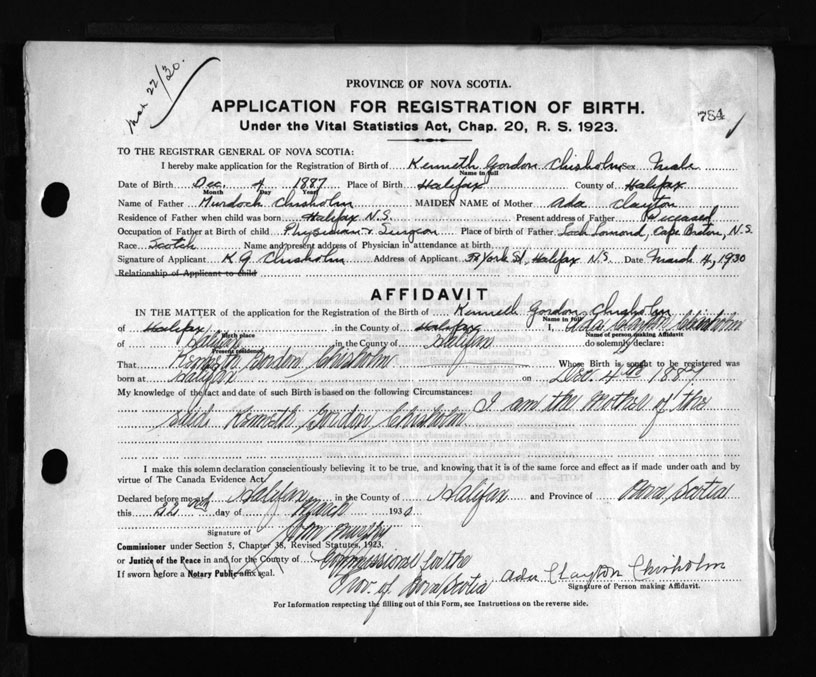 Mar 22/30.
PROVINCE OF NOVA SCOTIA.
APPLICATION FOR REGISTRATION OF BIRTH.
784
Under the Vital Statistics Act, Chap. 20, R. S. 1923.
TO THE REGISTRAR GENERAL OF NOVA SCOTIA:
I hereby make application for the Registration of Birth of Kenneth Gordon Chisholm Sex Male
Name in full
Date of Birth Dec. 4 1887 Place of Birth Halifax County of Halifax
Month Day Year
Name of Father Murdoch Chisholm MAIDEN NAME of Mother Ada Clayton
Residence of Father when child was born Halifax N.S. Present address of Father Deceased
Occupation of Father at Birth of child Physician & Surgeon Place of birth of Father Loch Lomond, Cape Breton, N.S.
Race Scotch Name and present address of Physician in attendance at birth
Signature of Applicant K G Chisholm Address of Applicant York St, Halifax N.S. Date March 4, 1930
Relationship of Applicant to Child
AFFIDAVIT
IN THE MATTER of the application for the Registration of Birth of Kenneth Gordon Chisholm
Name in full
of Halifax in the County of Halifax I, Ada Clayton Chisholm
Birth place Name of person making Affidavit
of Halifax in the County of Halifax do solemnly declare:
Present residence
That Kenneth Gordon Chisholm Whose Birth is sought to be registered was
born at Halifax on Dec. 4th 1887
My knowledge of the fact and date of such Birth is based on the following Circumstances: I am the Mother of the
said Kenneth Gordon Chisholm
I make this solemn declaration conscientiously believing it to be true, and knowing that it is of the same force and effect as if made under oath and by
virtue of The Canada Evidence Act.
Declared before me at Halifax in the County of Halifax and Province of Nova Scotia
this 22nd day of March 1930
Signature of Wm Murphy
Commissioner under Section 5, Chapter 38, Revised Statutes, 1923,
or Justice of the Peace in and for the County of
If sworn before a Notary Public affix seal.
Commissional for the
Prov. of Nova Scotia
Ada Clayton Chisholm
Signature of Person making Affidavit.
For Information respecting the filling out of this Form, see Instructions on the reverse side.